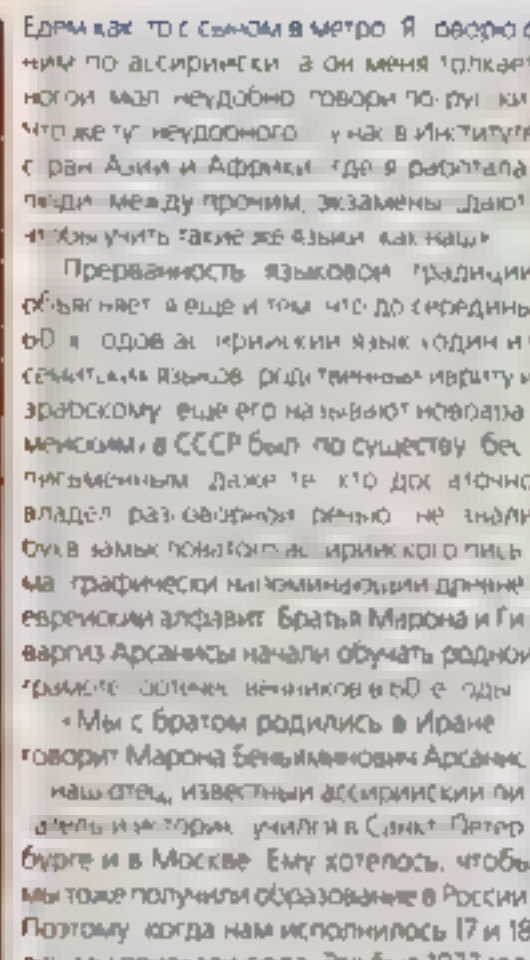 Едем как-то с сыном в метро. Я говорю с
ним по-ассирийски, а он меня толкает
ногой: мол, неудобно, говори по-русски.
Что же тут неудобного? У нас в Институте
стран Азии и Африки, где я работала,
люди, между прочим, экзамены сдают,
чтобы учить такие же языки, как наш».
Прерванность языковой традиции
объясняется еще и тем, что до середины
60-х годов ассирийский язык (один из
семитских языков, родственный ивриту и
арабскому, еще его называют новоара-
мейским) в СССР был, по существу, бес-
письменным. Даже те, кто достаточно
владел разговорной речью, не знали
букв замысловатого ассирийского пись-
ма, графически напоминающий древне-
еврейский алфавит. Братья Марона и Ги-
варгиз Арсанисы начали обучать родной
грамоте соплеменников в 60-е годы.
«Мы с братом родились в Иране, –
говорит Марона Беньяминович Арсанис,
– наш отец, известный ассирийский пи-
сатель и историк, учился в Санкт-Петер-
бурге и в Москве. Ему хотелось, чтобы
мы тоже получили образование в России.
Поэтому, когда нам исполнилось 17 и 18